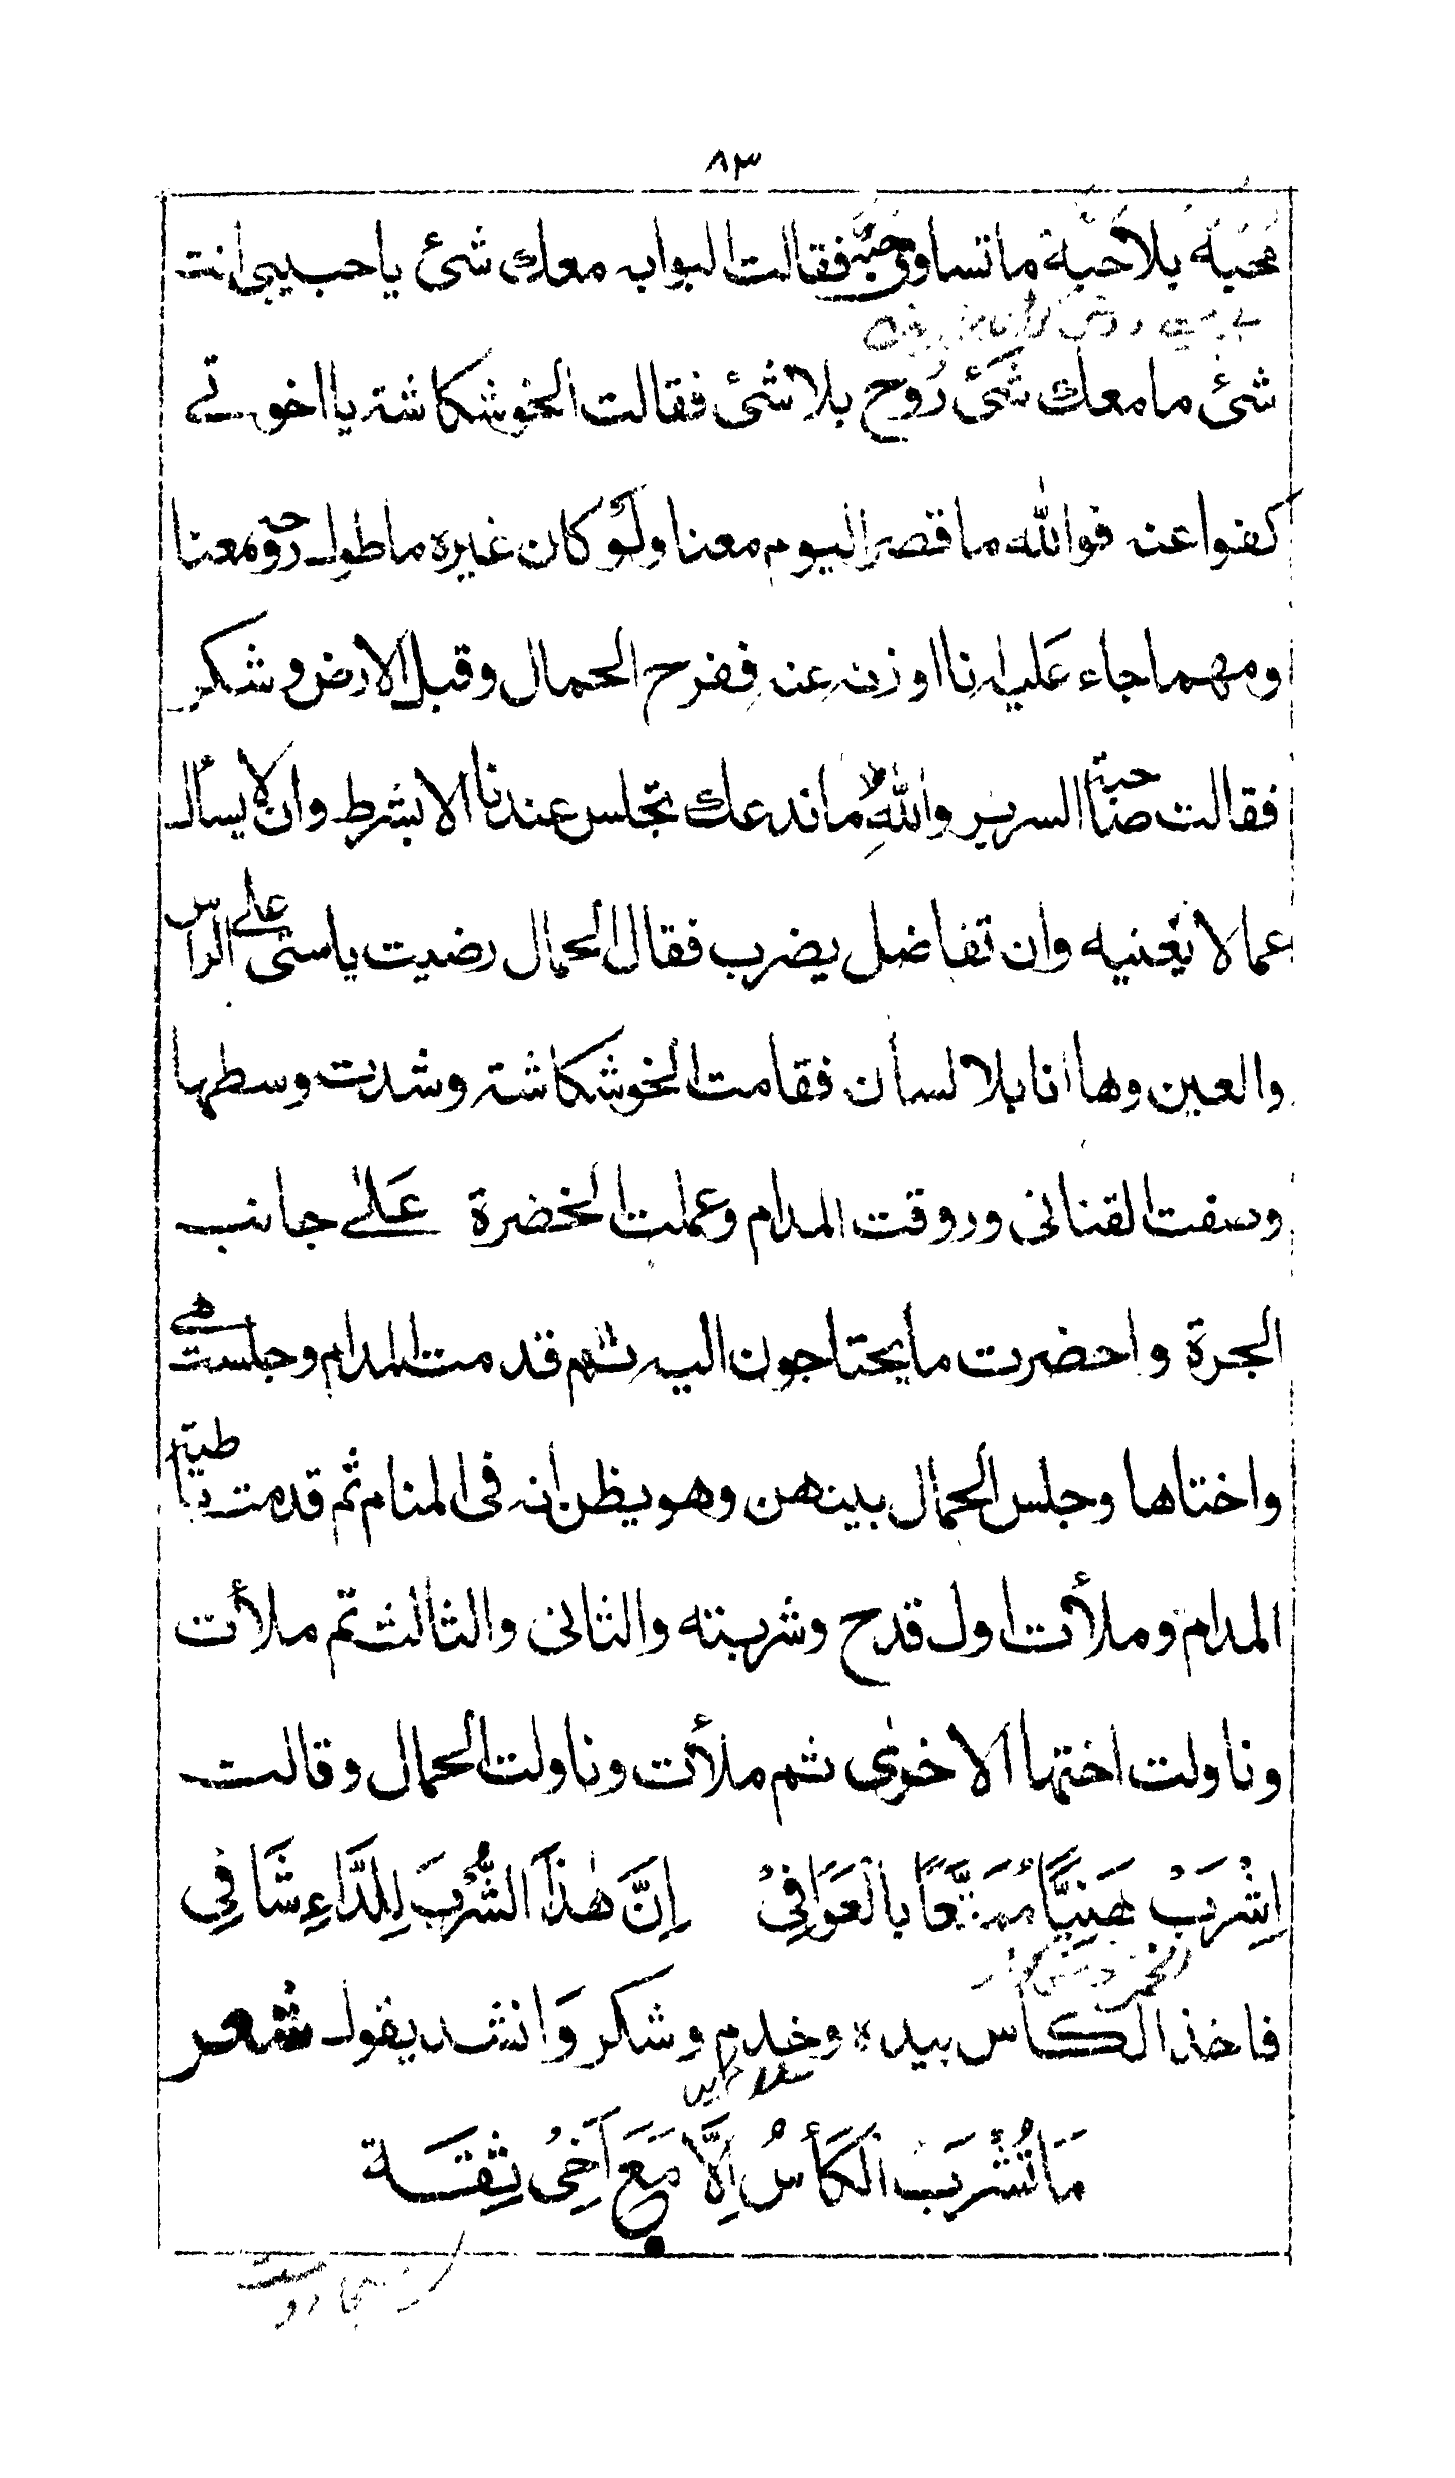 ٨٣
محبة بلا حبة ما تساوى حبه فقالت البوابه معك شئ يا حبيبى انت
شئ ما معك شَئ رُوح بلا شئ فقالت الخوشكاشة يا اخوتے
كفوا عنه فوالله ما قصر اليوم معنا ولَو كان غيره ما طول روحه معنا
ومهما جاء عَليه انا اوزنه عنه ففرح الحمال وقبل الارض وشكر
فقالت صاحبة السرير واللهِ ما ندعك تجلس عندنا الا بشرط وان لا يسأل
عما لا يَعنيه وان تفاضل يضرب فقال الحمال رضيت يا ستى علے الراس
والعين وها انا بلا لسان فقامت الخوشكاشة وشدت وسطها
وصفت القنانى وروقت المدام وعملت الخضرة عَلے جانب
الجرة واحضرت ما يحتاجون اليه ثم قدمت المدام وجلست هے
واختاها وجلس الحمال بينهن وهو يظن انه فى المنام ثم قدمت باطية
المدام وملأت اول قدح وشربته والثانى والثالث ثم ملأت
وناولت اختها الاخرى ثم ملأت وناولت الحمال وقالت
اِشْرَبْ هَنِيًّا مُمَتَّعًا بالْعَوَافِىْ اِنَّ هٰذَا الشُّرْبَ لِلدَّاءِ شَافِي
فاخذ الكاس بيده وخدم وشكر وَانشد يقول شعر
مَا تُشْرَبُ الْكَأْسُ اِلَّا مَعَ اَخِىْ ثِقَـة